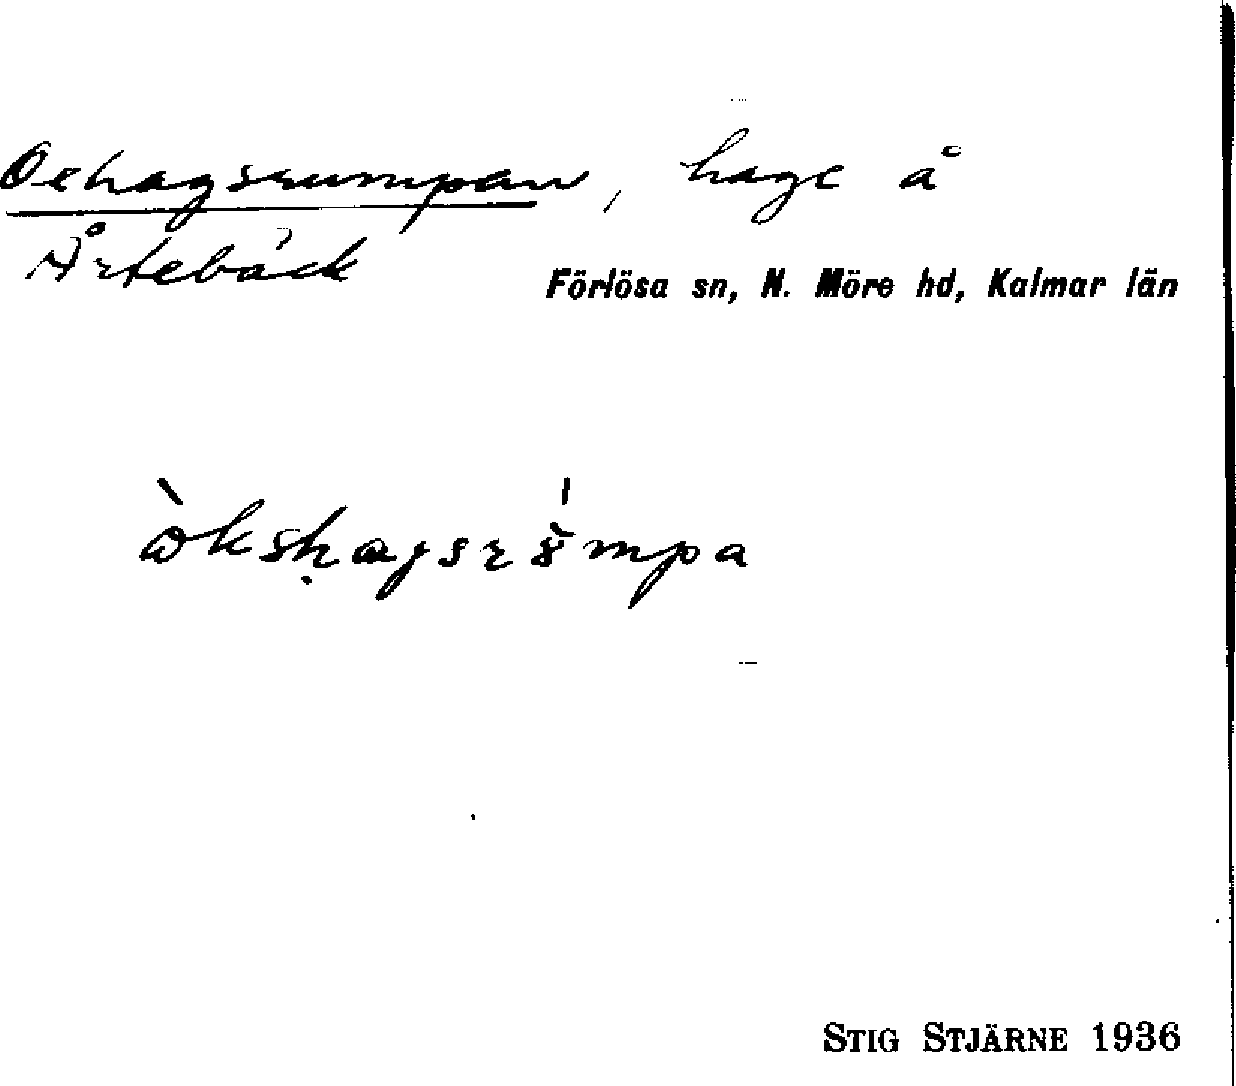 Oxhagsrumpan, hage å
Årtebäck
Förlösa sn, N. Möre hd, Kalmar län
STIG STJÄRNE 1936